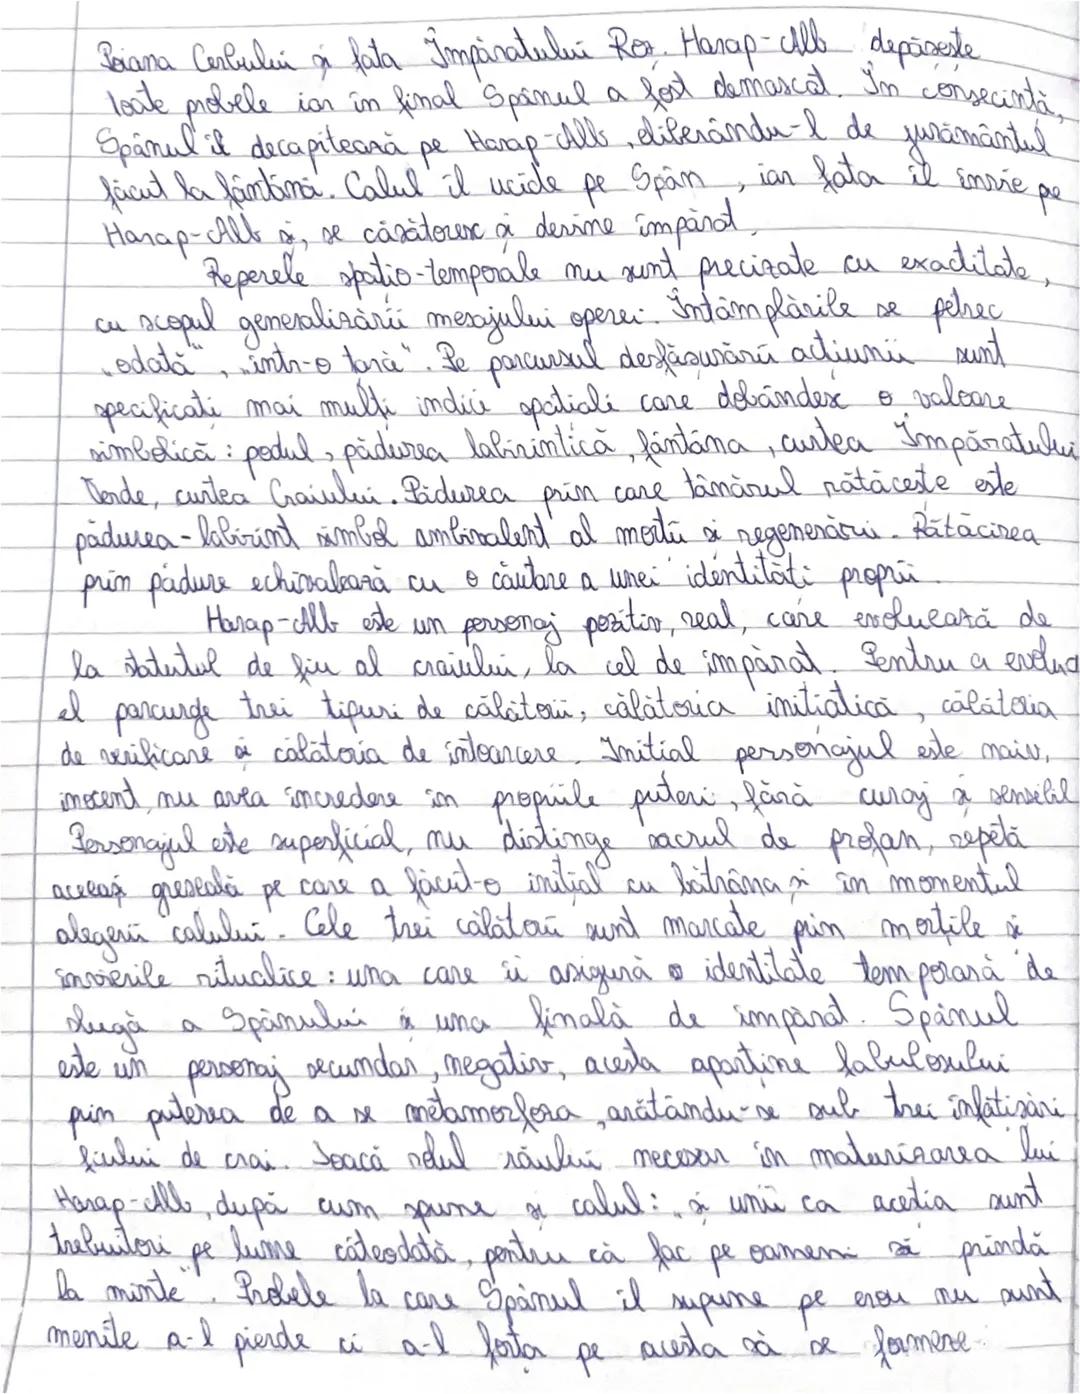 Poiana Cerbului și fata Împăratului Roș. Harap-Alb depășește
toate probele iar în final Spânul a fost demascat. În consecință,
Spânul îl decapitează pe Harap-Alb, eliberându-l de jurământul
făcut la fântână. Calul îl ucide pe Spân, iar fata îl învie pe
Harap-Alb și, se căsătoresc și devine împărat.
Reperele spațio-temporale nu sunt precizate cu exactitate,
cu scopul generalizării mesajului operei. Întâmplările se petrec
„odată", „într-o țară". Pe parcursul desfășurării acțiunii sunt
specificați mai mulți indici spațiali care dobândesc o valoare
simbolică: podul, pădurea labirintică, fântâna, curtea Împăratului
Verde, curtea Craiului. Pădurea prin care tânărul rătăcește este
pădurea-labirint simbol ambivalent al morții și regenerării. Rătăcirea
prin pădure echivalează cu o căutare a unei identități proprii.
Harap-Alb este un personaj pozitiv, real, care evoluează de
la statutul de fiu al craiului, la cel de împărat. Pentru a evolua
el parcurge trei tipuri de călătorii; călătoria inițiatică, călătoria
de verificare și călătoria de întoarcere. Inițial personajul este naiv,
inocent, nu avea încredere în propriile puteri, fără curaj și sensibil
Personajul este superficial, nu distinge sacrul de profan, repetă
aceeași greșeală pe care a făcut-o inițial cu bătrâna și în momentul
alegerii calului. Cele trei călătorii sunt marcate prin morțile și
învierile ritualice: una care îi asigură o identitate temporară de
slugă a Spânului și una finală de împărat. Spânul
este un personaj secundar, negativ, acesta aparține fabulosului
prin puterea de a se metamorfoza, arătându-se sub trei înfățișări
fiului de crai. Joacă rolul răului necesar în maturizarea lui
Harap-Alb, după cum spune și calul: „și unii ca aceștia sunt
trebuitori pe lume câteodată, pentru că fac pe oameni să prindă
la minte". Probele la care Spânul îl supune pe erou nu sunt
menite a-l pierde ci a-l forța pe acesta să se formeze.